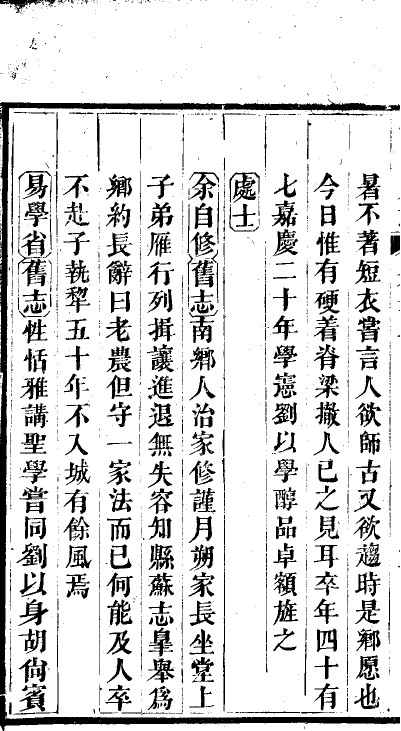 暑不著短衣嘗言人欲師古又欲趨時是鄉愿也
今日惟有硬着脊梁撇人已之見耳卒年四十有
七嘉慶二十年學憲劉以學醇品卓額旌之
處士
余自修舊志南鄉人治家修謹月朔家長坐堂上
子弟雁行列揖讓進退無失容知縣蘇志皐舉為
鄉約長辭曰老農但守一家法而已何能及人卒
不赴子執犂五十年不入城有餘風焉
易學省舊志性恬雅講聖學嘗同劉以身胡尙賓